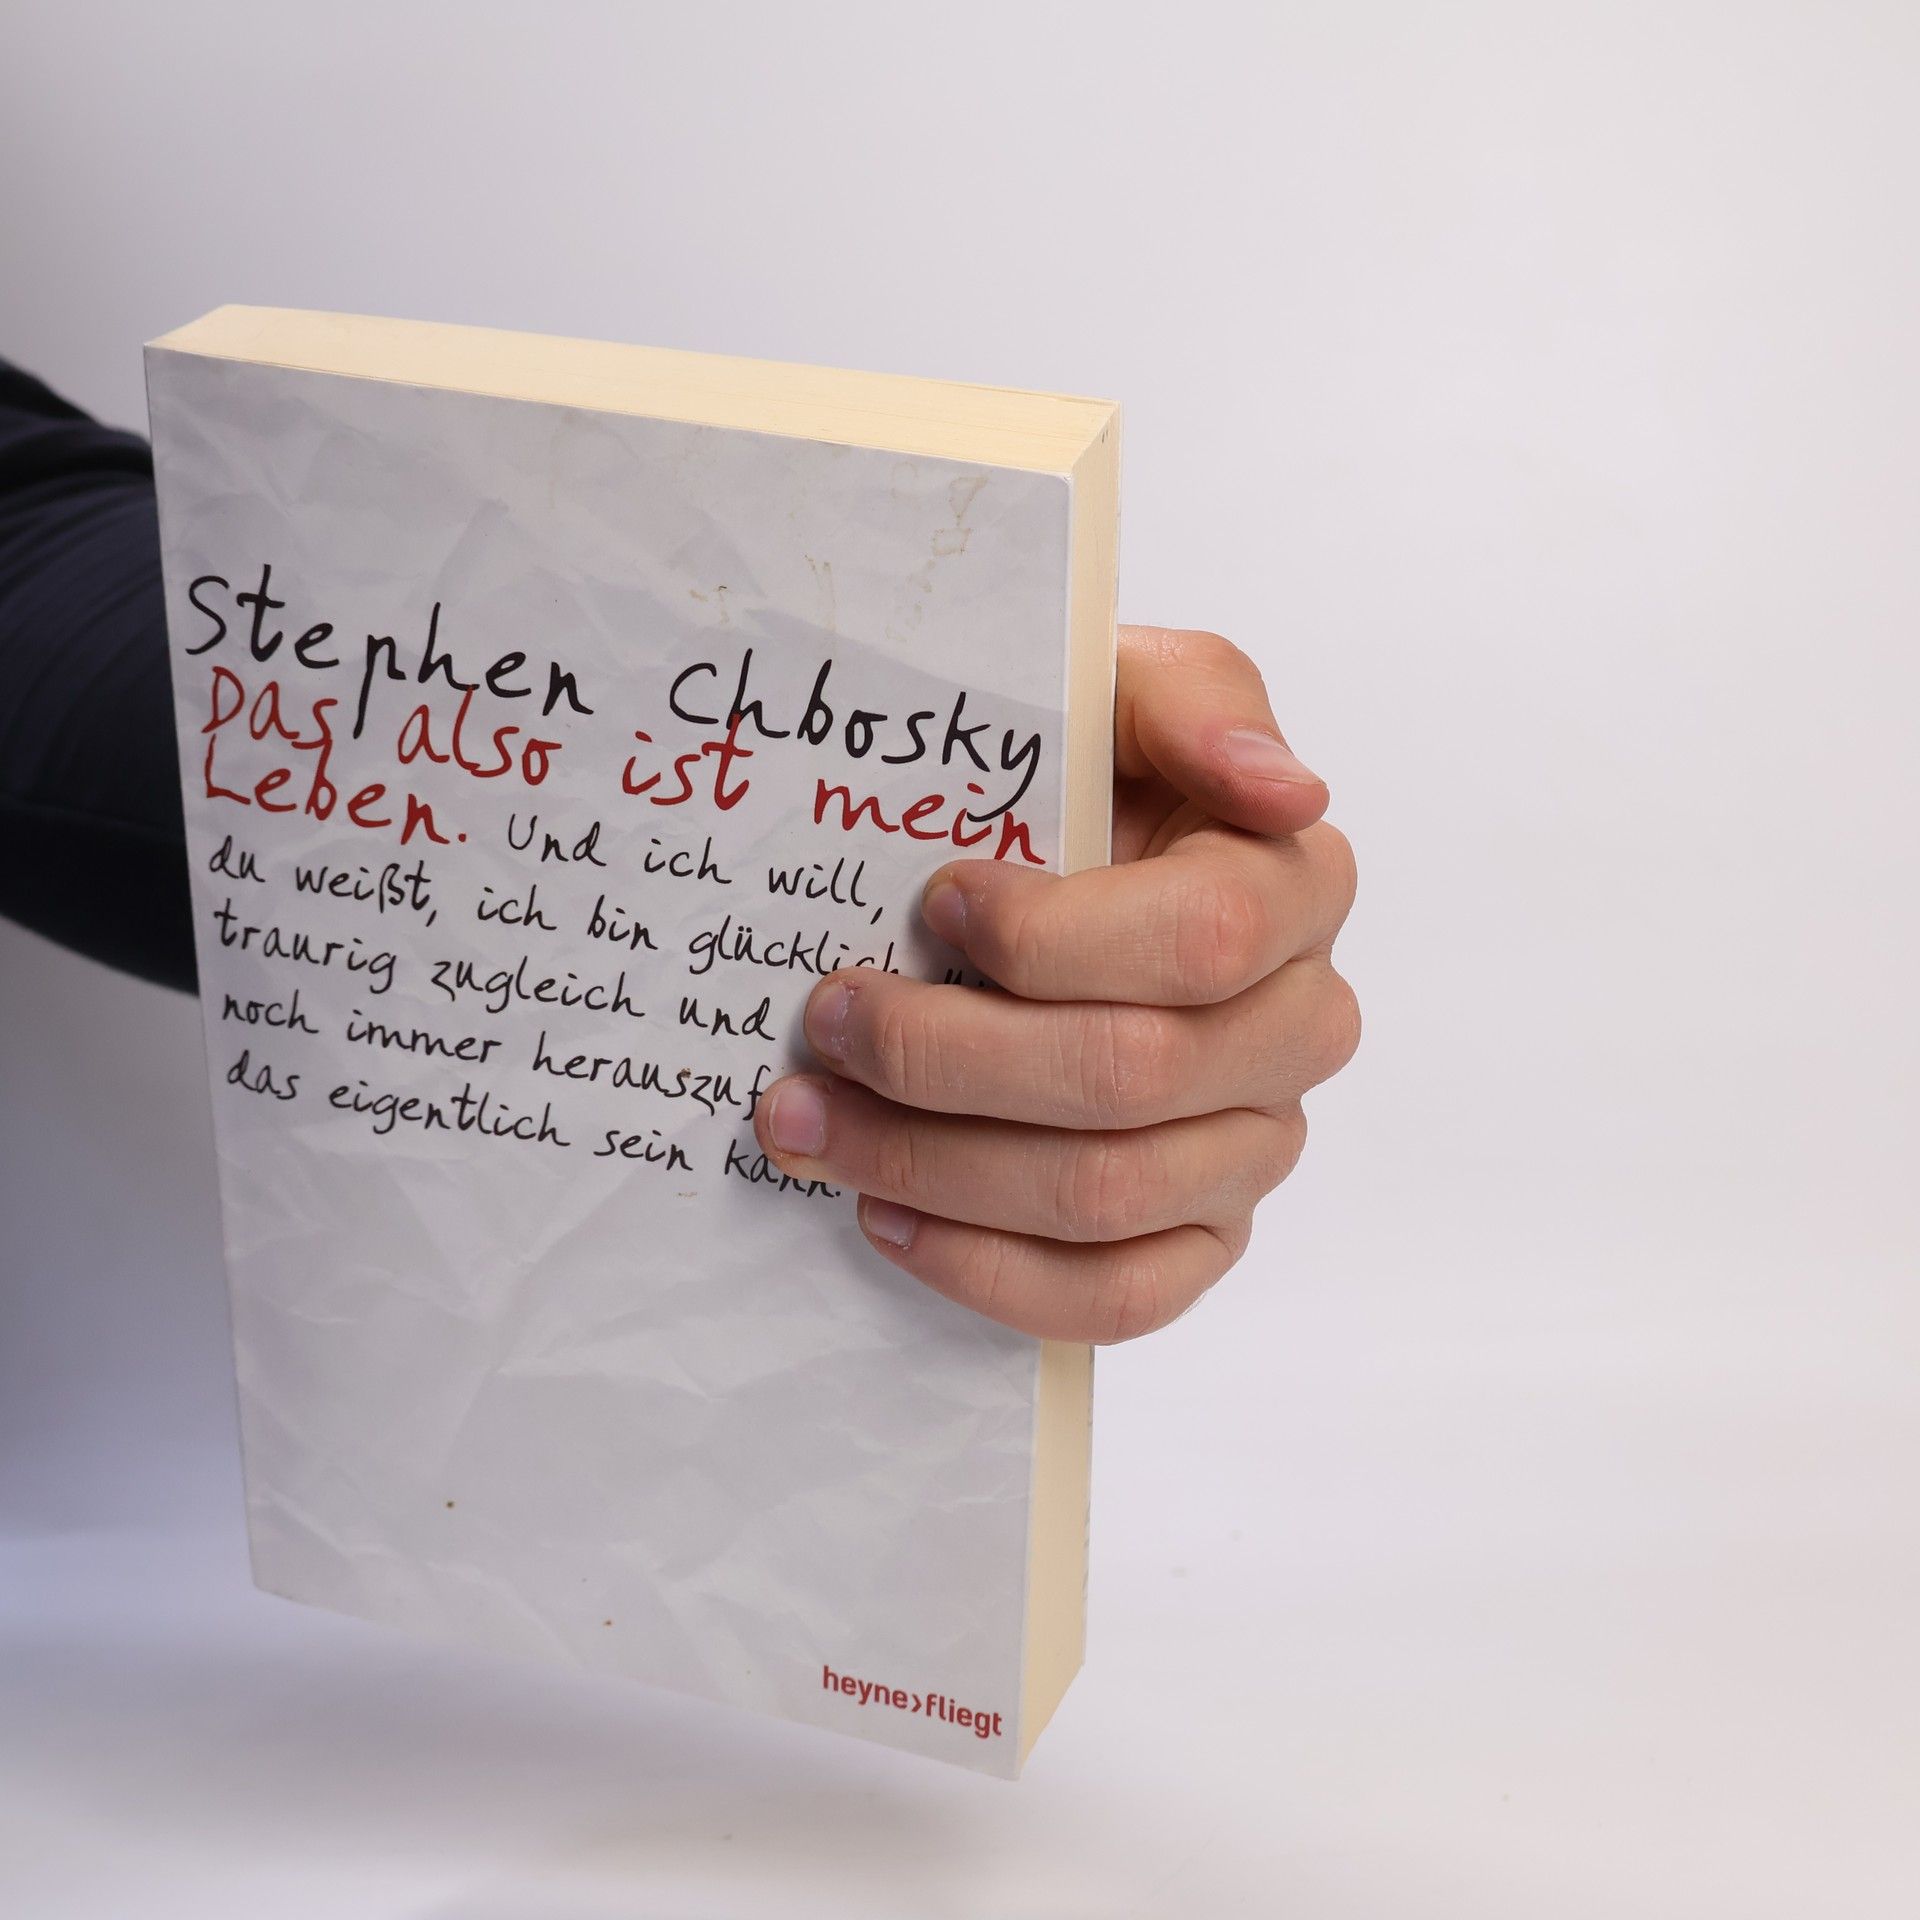 Stephen Chbosky
Das also ist mein
Leben. Und ich will,
du weißt, ich bin glücklich
traurig zugleich und
noch immer
das eigentlich sein kann.
heyne>fliegt